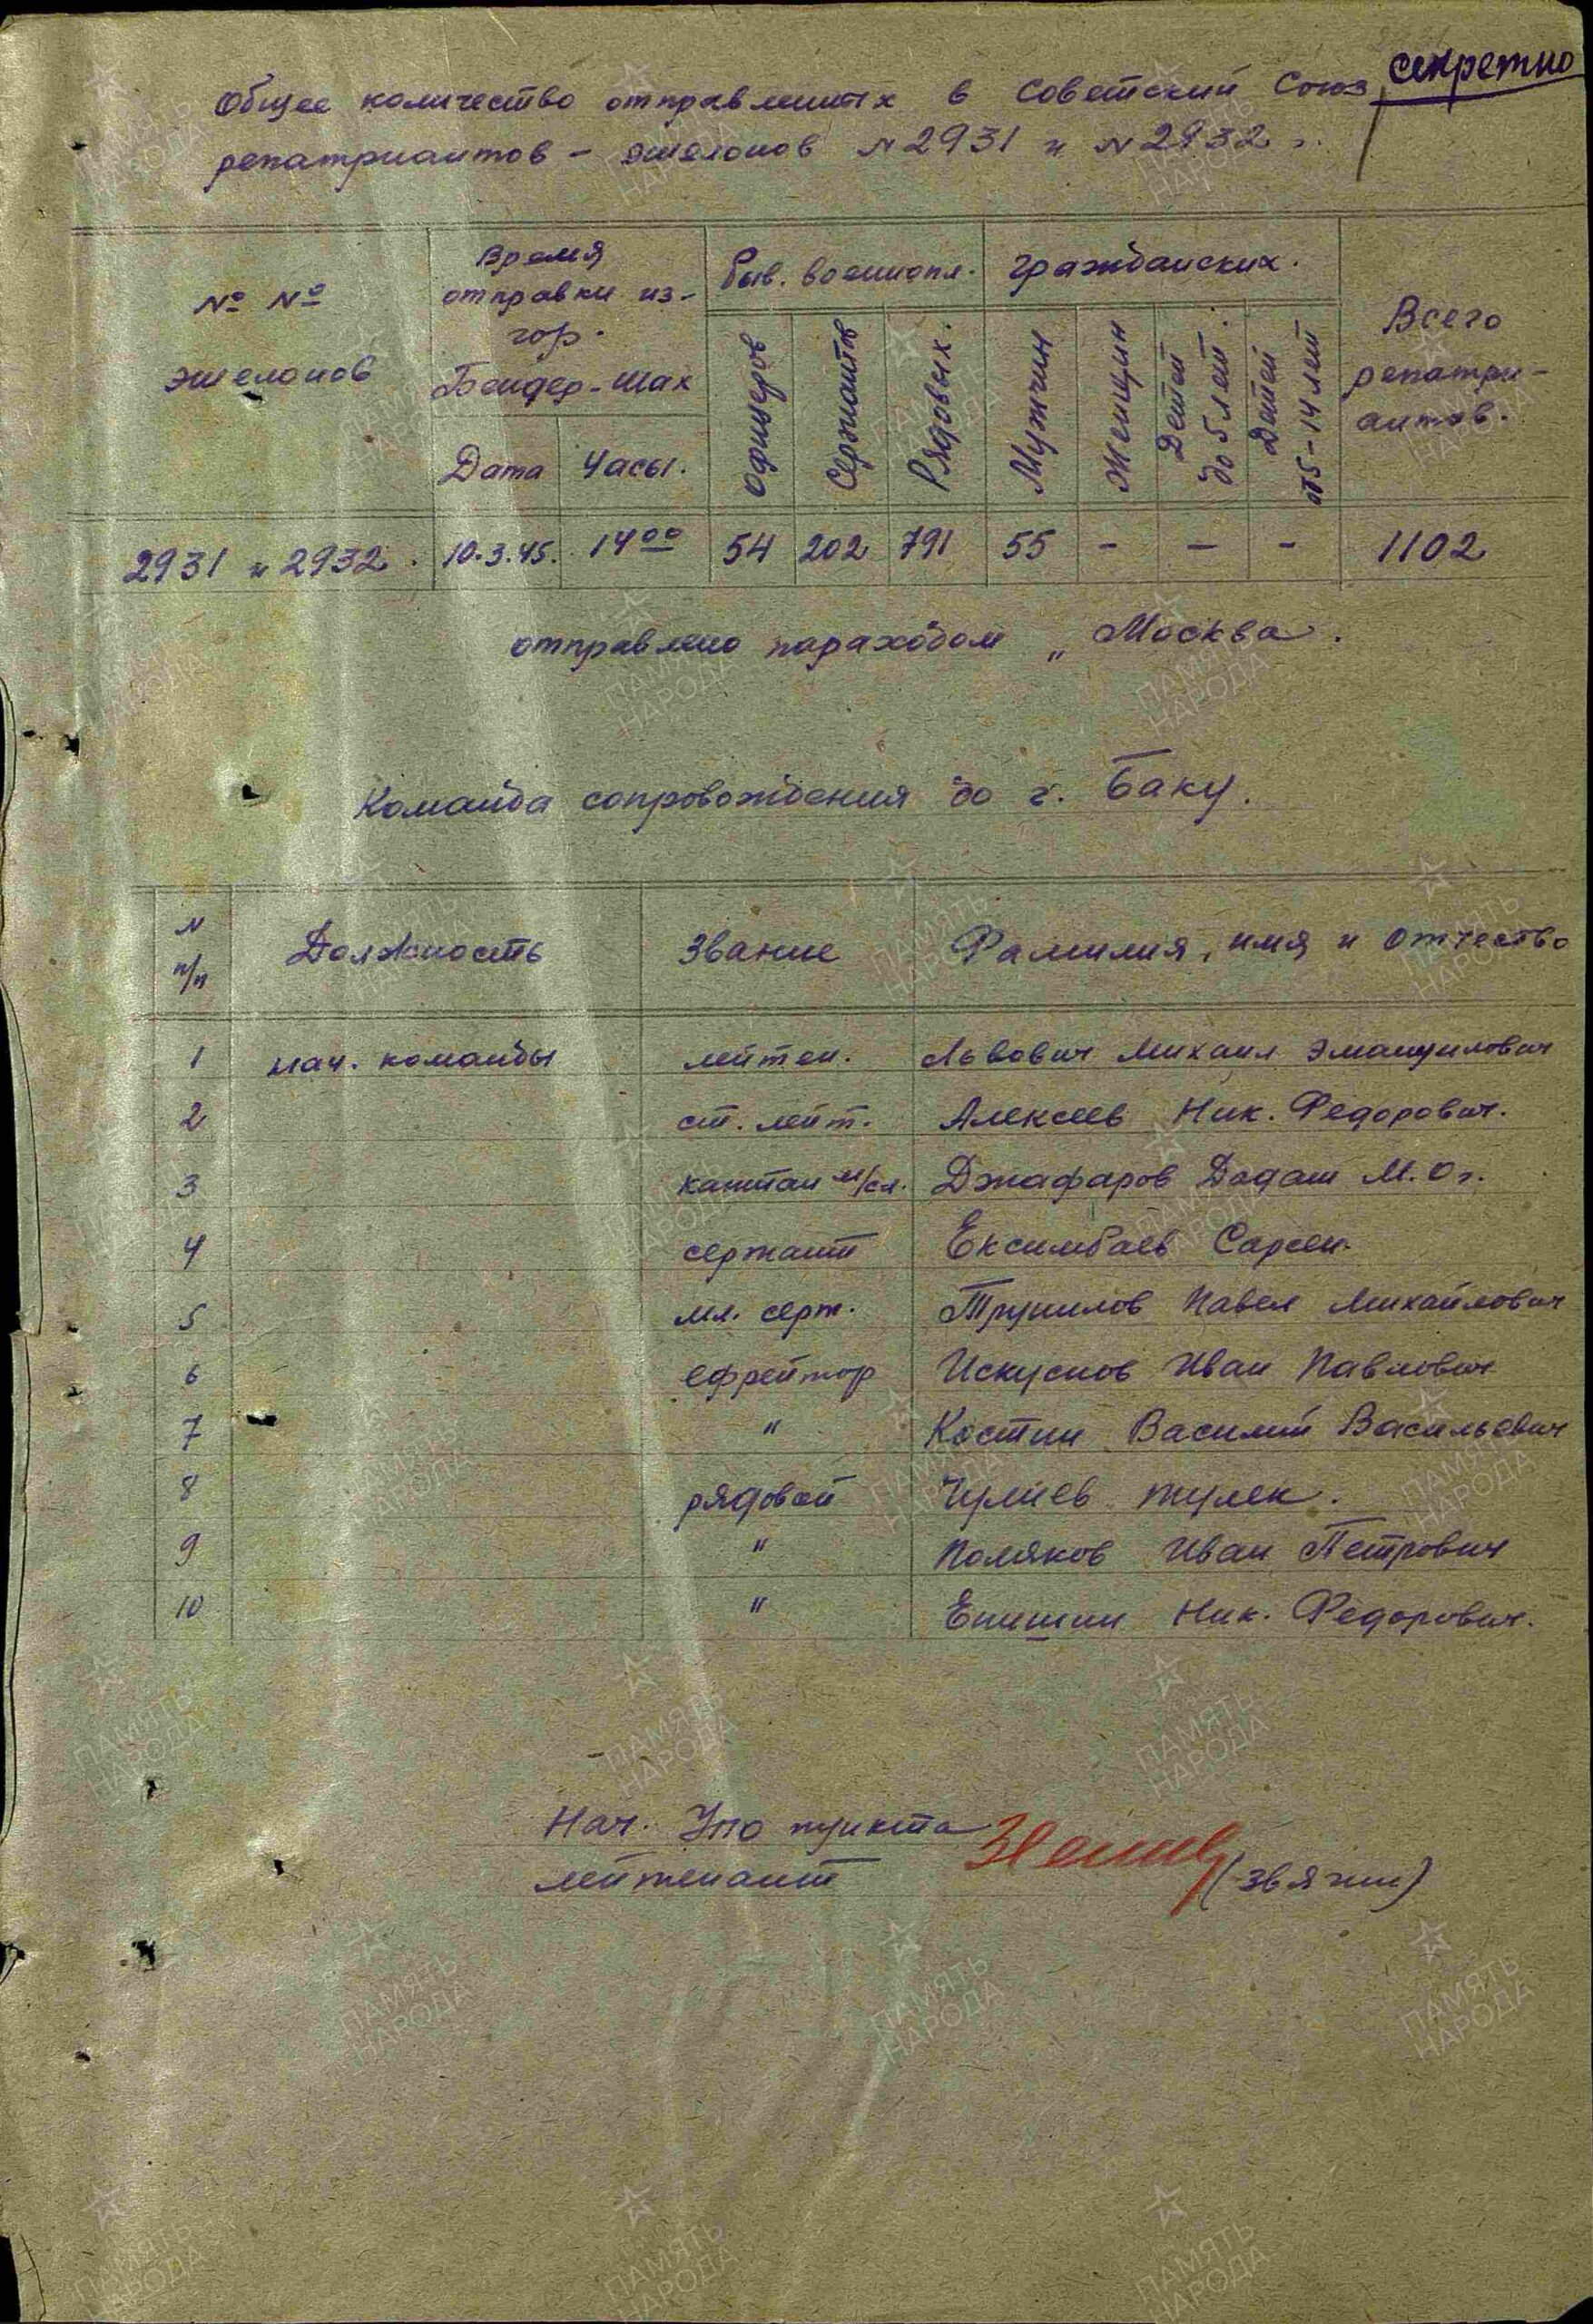 секретно
Общее количество отправленных в Советский Союз
репатриантов – эшелонов N 2931 и N 2932
№ № эшелонов
Время отправки из гор. Бендер-Шах
Дата
Часы.
Быв. военнопл.
Офицеров
Сержантов
Рядовых.
гражданских.
Мужчин
Женщин
Детей до 5 лет.
Детей от 5-14 лет
Всего репатри-антов.
2931 и 2932. 10.3.45. 14⁰⁰ 54 202 791 55 – – – 1102
отправлено параходом „Москва.
Команда сопровождения до г. Баку.
N п/п Должность Звание Фамилия, имя и отчество
1 нач. команды лейтен. Львович Михаил Эмануилович
2 ст. лейт. Алексеев Ник. Федорович.
3 капитан м/сл. Джафаров Дадаш М. Ог.
4 сержант Ексимбаев Сарсен.
5 мл. серж. Трунилов Павел Михайлович
6 ефрейтор Искуснов Иван Павлович
7 " Костин Василий Васильевич
8 рядовой Чулиев Тулек.
9 " Поляков Иван Петрович
10 " Епишин Ник. Федорович.
Нач. Упо пункта
лейтенант (Звягин)
ПАМЯТЬ НАРОДА